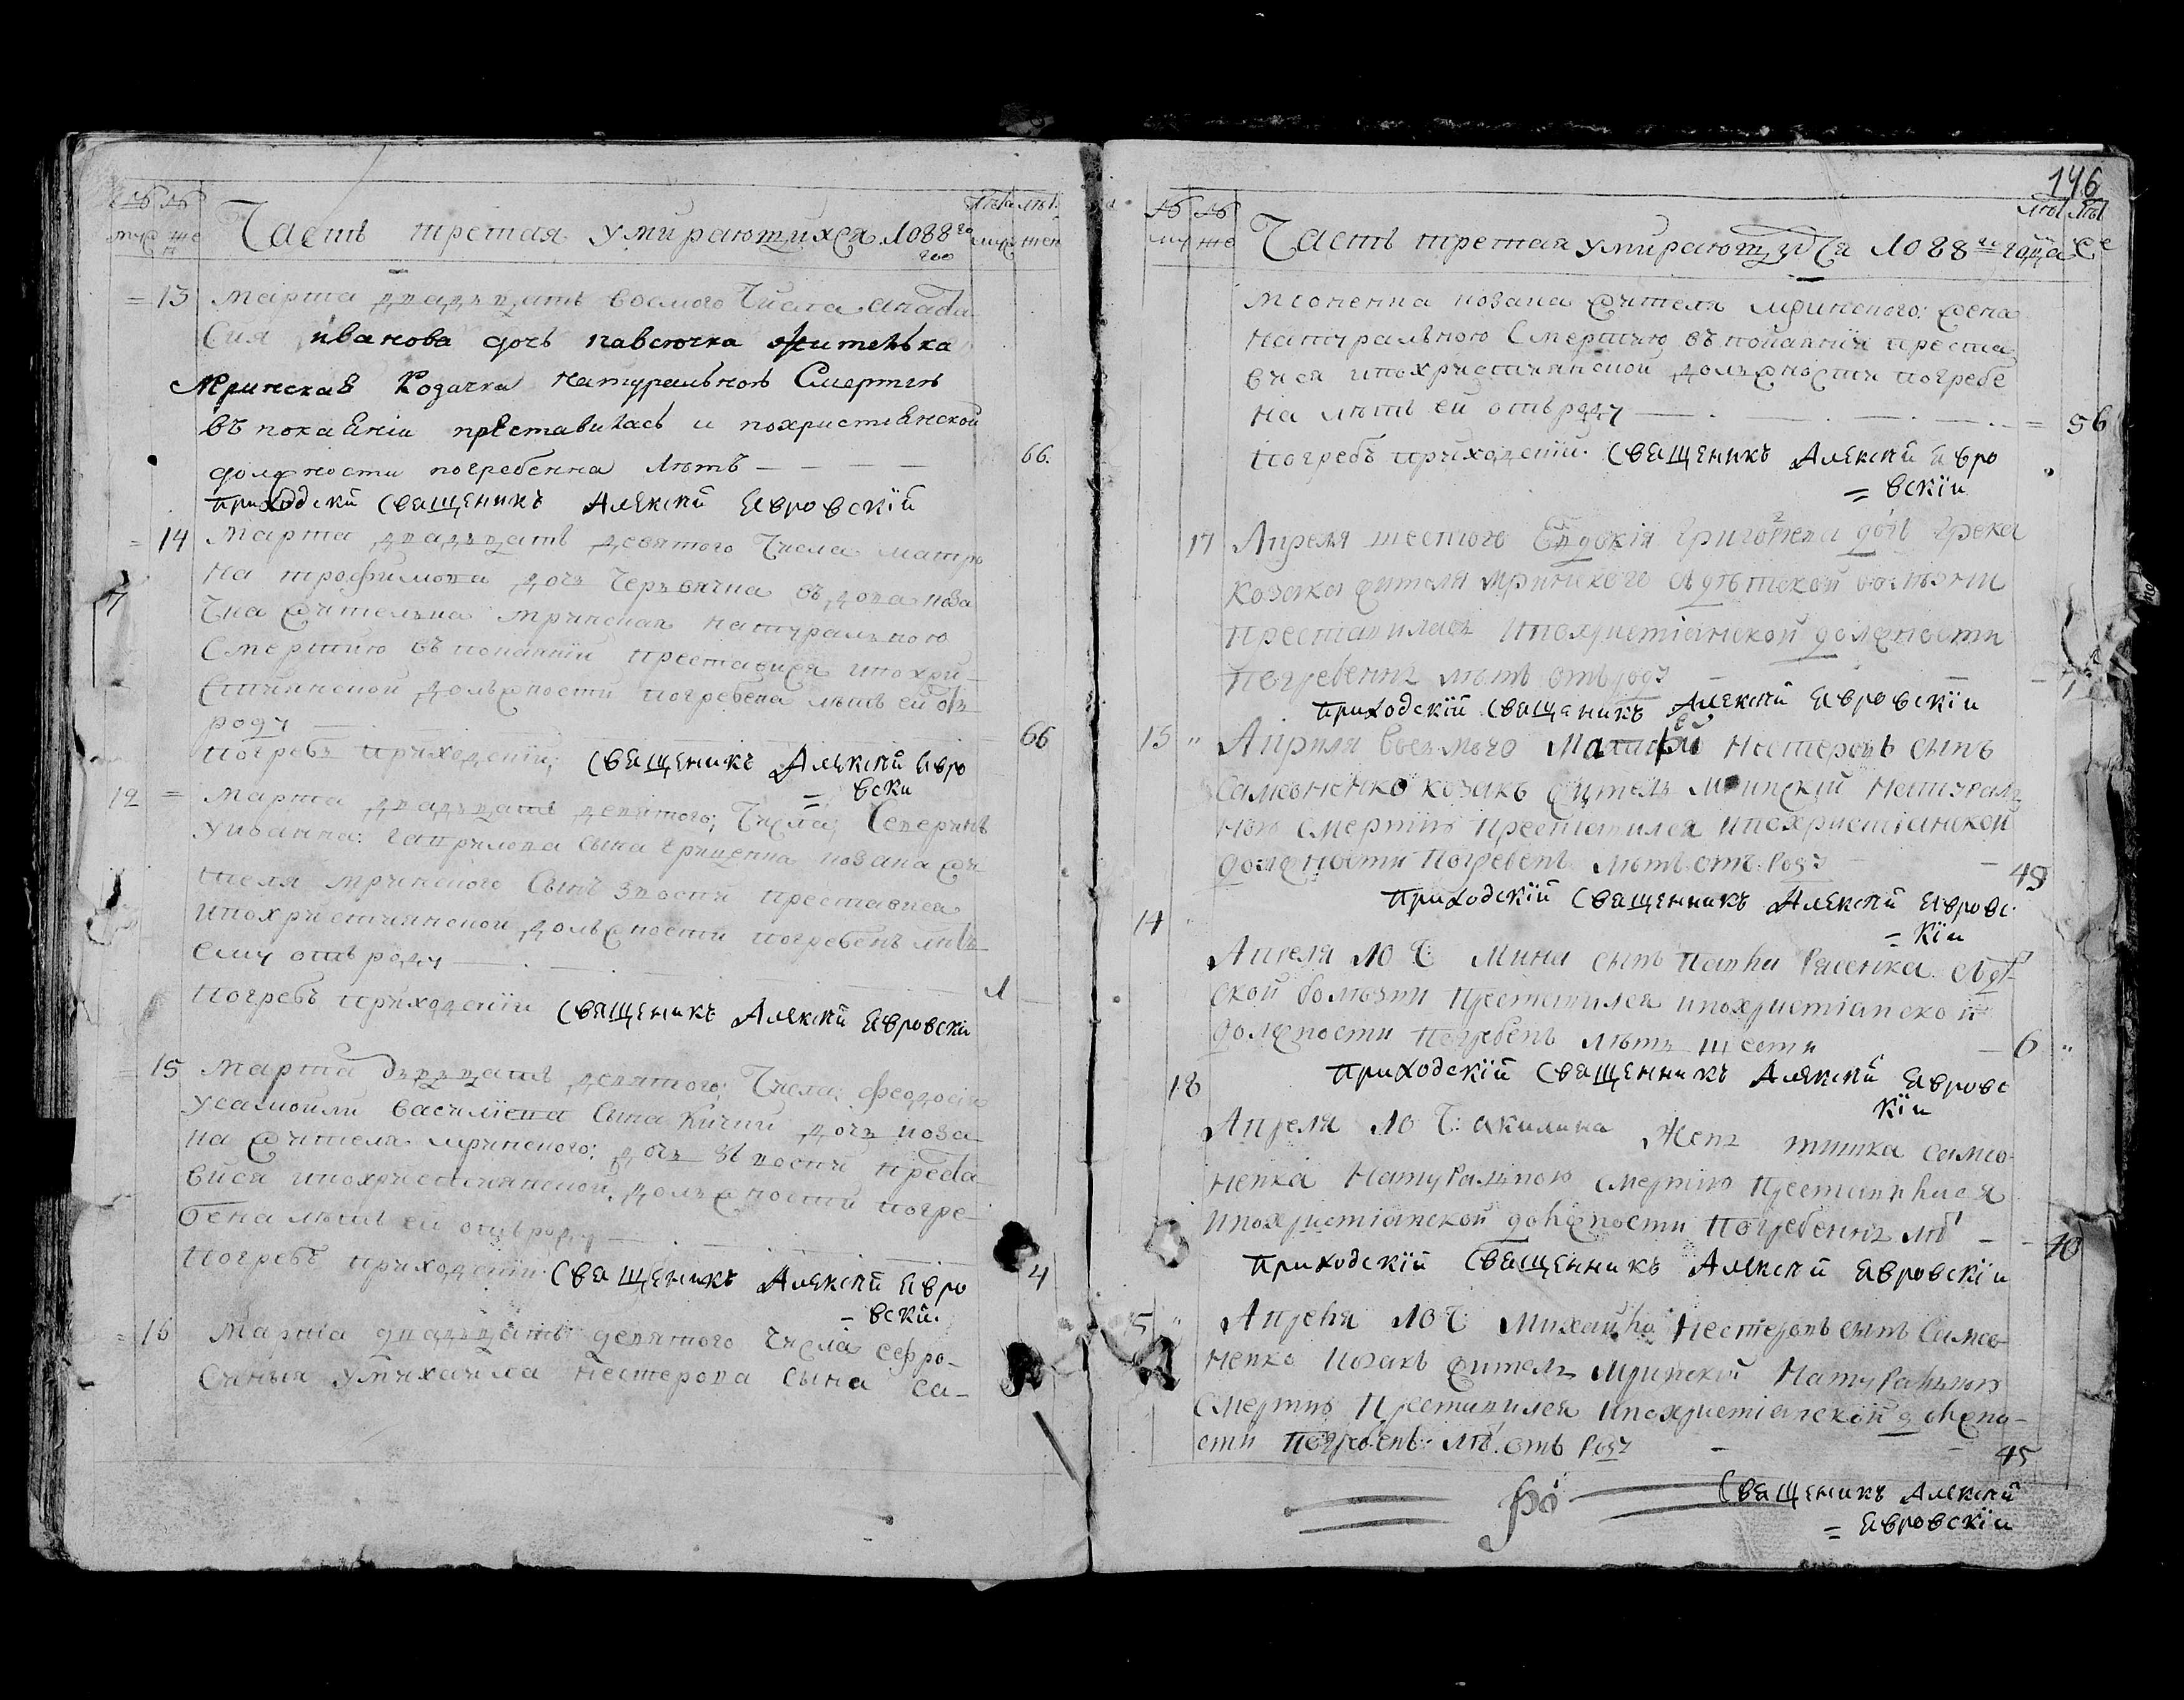 Часть третая умирающихся 1088 го
13 Марта двадъцать восмого Числа Анаста
сия иванова дочь павсючка жителька
Мринская Козачка натуральною Смертию
въ покаянiи преставилась и похристиянской
должности погребенна Лѣтъ — 66.
приходскiй Священикъ Алексiй Явровскiй
14 Марта двадъцать девятого Числа матро
на трофимова дочъ вдова коза
чка жителька мринская натуралною
Смертию въ покаянiи преставися ипохри-
стиянской должности погребена лѣтъ ей отъ
роду — 66
погребъ приходскiй Священикъ Алексiй Явро
= вски
12 = Марта двадъцать девятого Числа Северинъ
уиванна гаврилова сына гриценка козака жи
теля мринского Сынъ преставися
ипохристиянской должности погребенъ лѣтъ
ему отъ роду — 1
погребъ приходскiй Священикъ Алексiй Явровски
15 Марта двадъцать девятого Числа феодосия
усамоили василиева Сына дочъ коза
ка жителя мринского дочъ преста
вися ипохристиянской должности погре-
бена лѣтъ ей отъ роду — 4
погребъ приходскiй Священикъ Алексiй Явро
= вскiй.
= 16 Марта двадъцать девятого числа Сефро-
умихайла нестерова сына са-
146
Часть третая умирающихся 1088 го года
мсоненка козака жителя мринского жена
натуралъною Смертию въ покаянiи преста
вися ипохристиянской должности погребе
на лѣтъ ей отъ роду — 56
погребъ приходскiй Священикъ Алексiй Явро
= вскiи
17 Апреля шестого Евдокiя григориева дочь грека
козака жителя мринского дѣтской болѣзни
Преставилася ипохристiанской должности
погребеннa лѣтъ отъ роду — 1
приходскiй Священикъ Алексiй Явровскiи
13 " Априля восмого Матвiй Нестеровъ сынъ
Самсоненко козакъ житель Мринскiй Натурал
ною смертию преставился ипохристианской
должности погребенъ лѣтъ отъ роду — 49
приходскiй Священникъ Алексiй Явровс
= кiи
14 "
Апреля 10 Ч: Мина сынъ
ской болѣзни преставился ипохристiанской
должности погребенъ лѣтъ шести — 6 "
приходскiй Священникъ Алексiй Явровс
кiи
18
Апреля 10 Ч: акилина Жена тишка самсо-
ненка Натуралъною смертiю преставилася
ипохристiанской должности погребенна лѣ — 40
приходскiй Священникъ Алексiй Явровскiи
15 " Апреля 10 Ч: Михайло Нестеровъ сынъ Самсо-
ненко козакъ житель Мринскiй Натуралъною
смертию преставился ипохристiанской должно-
сти погребенъ лѣ отъ роду — 45
Священикъ Алексiй
= Явровскiи